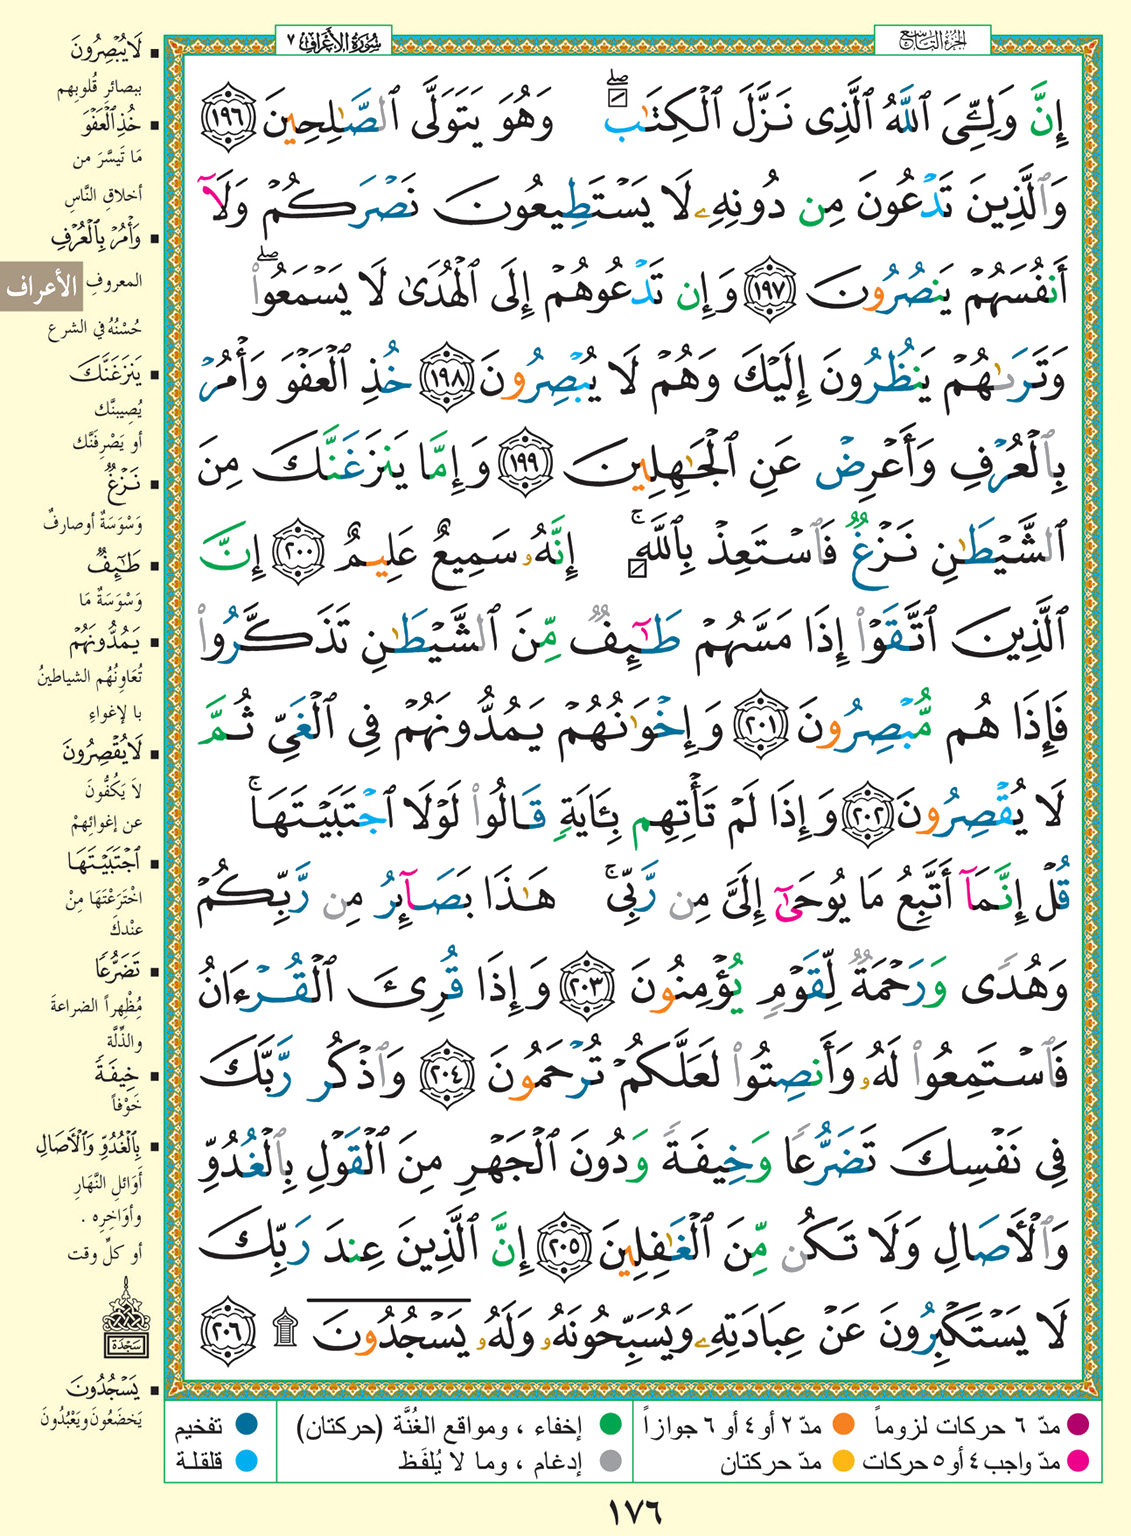 الجزء التاسع
سُورَةُ الأَعْرَافِ ٧
إِنَّ وَلِـِّۧىَ ٱللَّهُ ٱلَّذِى نَزَّلَ ٱلْكِتَـٰبَ ۖ وَهُوَ يَتَوَلَّى ٱلصَّـٰلِحِينَ ١٩٦
وَٱلَّذِينَ تَدْعُونَ مِن دُونِهِۦ لَا يَسْتَطِيعُونَ نَصْرَكُمْ وَلَآ
أَنفُسَهُمْ يَنصُرُونَ ١٩٧ وَإِن تَدْعُوهُمْ إِلَى ٱلْهُدَىٰ لَا يَسْمَعُوا۟ ۖ
وَتَرَىٰهُمْ يَنظُرُونَ إِلَيْكَ وَهُمْ لَا يُبْصِرُونَ ١٩٨ خُذِ ٱلْعَفْوَ وَأْمُرْ
بِٱلْعُرْفِ وَأَعْرِضْ عَنِ ٱلْجَـٰهِلِينَ ١٩٩ وَإِمَّا يَنزَغَنَّكَ مِنَ
ٱلشَّيْطَـٰنِ نَزْغٌ فَٱسْتَعِذْ بِٱللَّهِ ۚ إِنَّهُۥ سَمِيعٌ عَلِيمٌ ٢٠٠ إِنَّ
ٱلَّذِينَ ٱتَّقَوْا۟ إِذَا مَسَّهُمْ طَـٰٓئِفٌ مِّنَ ٱلشَّيْطَـٰنِ تَذَكَّرُوا۟
فَإِذَا هُم مُّبْصِرُونَ ٢٠١ وَإِخْوَٰنُهُمْ يَمُدُّونَهُمْ فِى ٱلْغَىِّ ثُمَّ
لَا يُقْصِرُونَ ٢٠٢ وَإِذَا لَمْ تَأْتِهِم بِـَٔايَةٍ قَالُوا۟ لَوْلَا ٱجْتَبَيْتَهَا ۚ
قُلْ إِنَّمَآ أَتَّبِعُ مَا يُوحَىٰٓ إِلَىَّ مِن رَّبِّى ۚ هَـٰذَا بَصَآئِرُ مِن رَّبِّكُمْ
وَهُدًى وَرَحْمَةٌ لِّقَوْمٍ يُؤْمِنُونَ ٢٠٣ وَإِذَا قُرِئَ ٱلْقُرْءَانُ
فَٱسْتَمِعُوا۟ لَهُۥ وَأَنصِتُوا۟ لَعَلَّكُمْ تُرْحَمُونَ ٢٠٤ وَٱذْكُر رَّبَّكَ
فِى نَفْسِكَ تَضَرُّعًا وَخِيفَةً وَدُونَ ٱلْجَهْرِ مِنَ ٱلْقَوْلِ بِٱلْغُدُوِّ
وَٱلْـَٔاصَالِ وَلَا تَكُن مِّنَ ٱلْغَـٰفِلِينَ ٢٠٥ إِنَّ ٱلَّذِينَ عِندَ رَبِّكَ
لَا يَسْتَكْبِرُونَ عَنْ عِبَادَتِهِۦ وَيُسَبِّحُونَهُۥ وَلَهُۥ يَسْجُدُونَ ۩ ٢٠٦
لَا يُبْصِرُونَ
ببصائرِ قُلوبِهم
خُذِ ٱلْعَفْوَ
مَا تَيَسَّرَ من
أخلاق النَّاسِ
وَأْمُرْ بِٱلْعُرْفِ
المعروفِ
حُسْنُهُ في الشرع
الأعراف
يَنزَغَنَّكَ
يُصِيبنَّك
أو يَصْرِفَنَّك
نَزْغٌ
وَسْوَسَةٌ أوصارفٌ
طَـٰٓئِفٌ
وَسْوَسَةٌ مَا
يَمُدُّونَهُمْ
تُعَاوِنُهُم الشياطينُ
با لإغواءِ
لَا يُقْصِرُونَ
لاَ يَكُفُّونَ
عن إغوائِهِمْ
ٱجْتَبَيْتَهَا
اخْتَرَعْتَهَا مِنْ
عنْدكَ
تَضَرُّعًا
مُظْهِراً الضراعَة
والذِّلَّة
خِيفَةً
خَوْفاً
بِٱلْغُدُوِّ وَٱلْـَٔاصَالِ
أَوَائلِ النَّهَارِ
وأوَاخِرِه .
أو كلِّ وقت
سَجْدَة
يَسْجُدُونَ
يَخضَعُونَ ويَعْبُدُونَ
مدّ ٦ حركات لزوماً
مدّ ٢ أو ٤ أو ٦ جوازاً
إخفاء ، ومواقع الغُنَّة (حركتان)
تفخيم
مدّ واجب ٤ أو ٥ حركات
مدّ حركتان
إدغام ، وما لا يُلفَظ
قلقلة
١٧٦